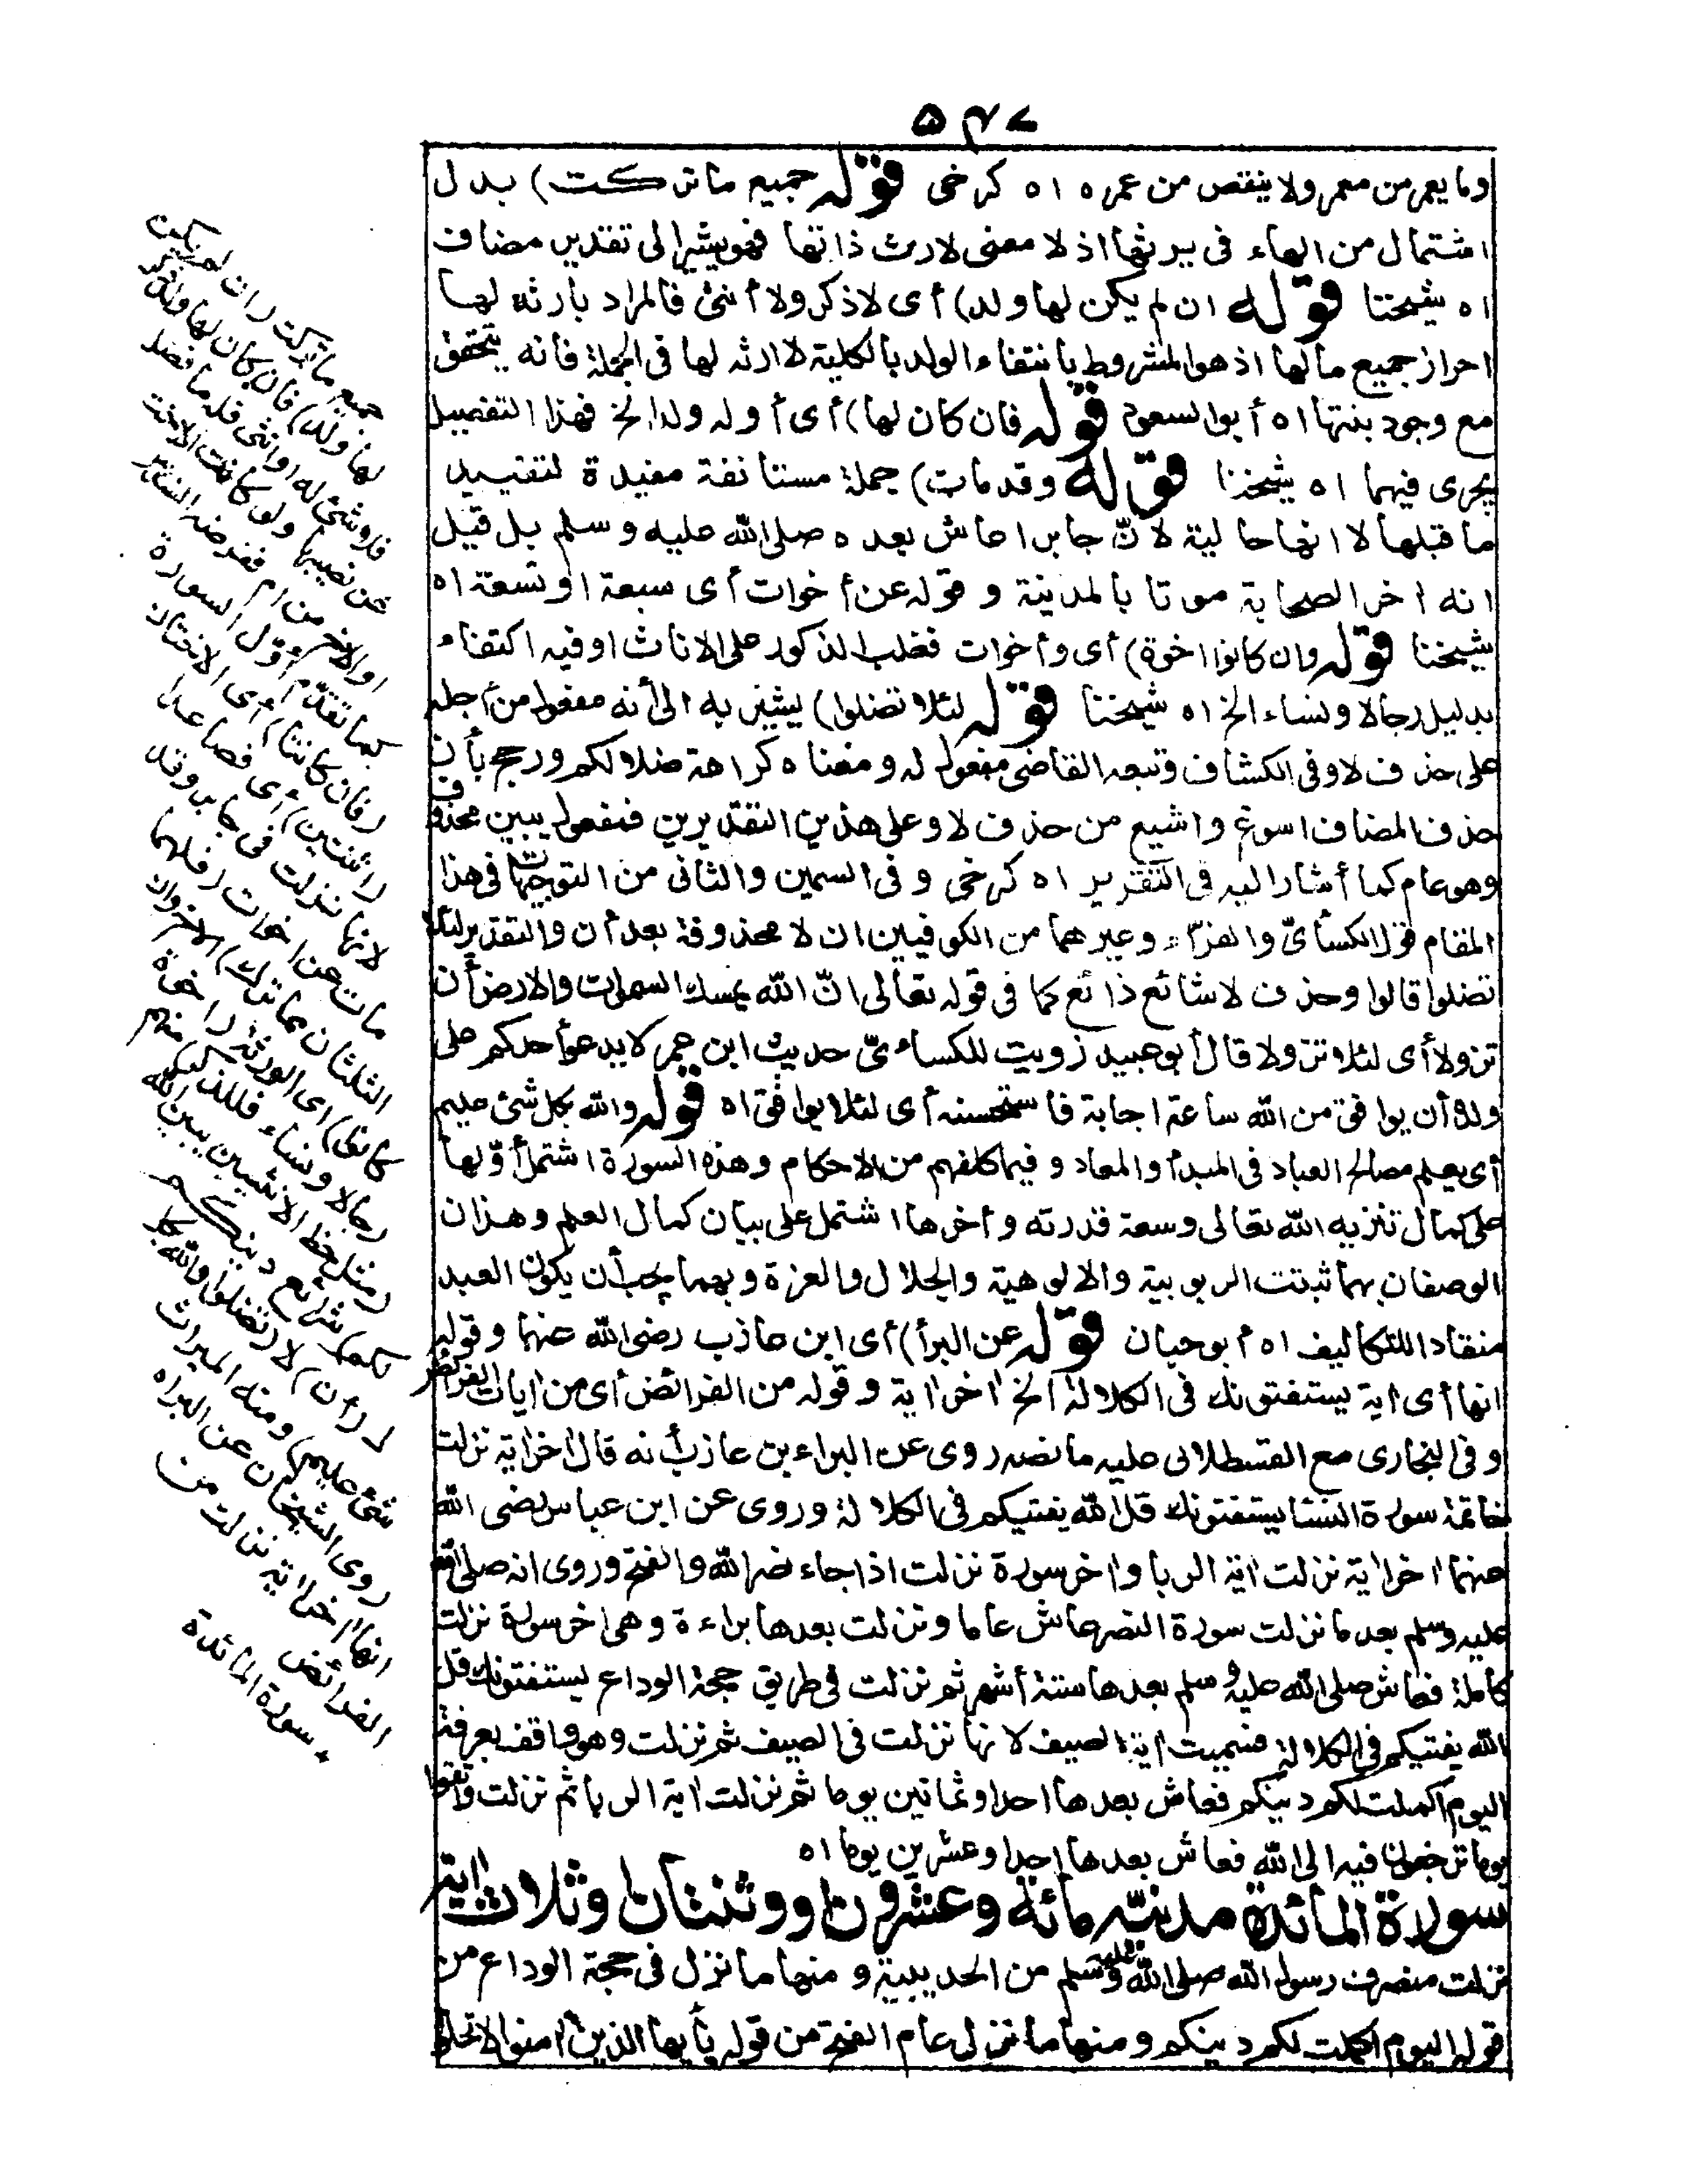 ٥٤٧
وما يعمر من معمر ولا ينقص من عمره اه كرخى قوله جميع ما تركت) بدل
اشتمال من الهاء فى يرثها اذ لا معنى لارث ذاتها فهو يشير الى تقدير مضاف
اه شيخنا قوله ان لم يكن لها ولد) أى لا ذكر ولا أنثى فالمراد بارثه لها
احراز جميع مالها اذ هو المشروط بانتفاء الولد بالكلية لا ارثه لها فى الجملة فانه يتحقق
مع وجود بنتها اه أبو السعود قوله فان كان لها) أى أو له ولد الخ فهذا التفصيل
يجرى فيهما اه شيخنا قوله وقد مات) جملة مستانفة مفيدة لتقييد
ما قبلها لا انها حالية لانّ جابرا عاش بعده صلى الله عليه وسلم بل قيل
انه اخر الصحابة موتا بالمدينة و قوله عن أخوات أى سبعة او تسعة اه
شيخنا قوله وان كانوا اخوة) أى وأخوات فغلب الذكور على الاناث او فيه اكتفاء
بدليل رجالا ونساء الخ اه شيخنا قوله لئلا تضلوا) يشير به الى أنه مفعول من أجله
على حذف لا وفى الكشاف وتبعه القاضى مفعول له ومعناه كراهة ضلالكم ورجح بأن
حذف المضاف اسوغ واشيع من حذف لا وعلى هذين التقديرين فمفعول يبين محذوف
وهو عام كما أشار اليه فى التقرير اه كرخى وفى السمين والثانى من التوجيهات فى هذا
المقام قول الكسائىّ والفرّاء وغيرهما من الكوفيين ان لا محذوفة بعد أن والتقدير لئلا
تضلوا قالوا وحذف لا شائع ذائع كما فى قوله تعالى انّ الله يمسك السموات والارض أن
تزولا أى لئلا تزولا قال أبو عبيد رويت للكساءىّ حديث ابن عمر لا يدعو أحدكم على
ولده أن يوافق من الله ساعة اجابة فاستحسنه أى لئلا يوافق اه قوله والله بكل شئ عليم
أى يعلم مصالح العباد فى المبدأ والمعاد و فيما كلفهم من الاحكام وهذه السورة اشتمل أوّلها
على كمال تنزيه الله تعالى وسعة قدرته وأخرها اشتمل على بيان كمال العلم وهذان
الوصفان بهما ثبتت الربوبية والالوهية والجلال والعزة وبهما يجب أن يكون العبد
منقادا للتكاليف اه أبو حيان قوله عن البرأ) أى ابن عازب رضى الله عنهما وقوله
انها أى اية يستفتونك فى الكلالة الخ اخر اية و قوله من الفرائض أى من ايات الفرائض
وفى البخارى مع القسطلانى عليه ما نصه روى عن البراء بن عازب أنه قال اخر اية نزلت
خاتمة سورة النسا يستفتونك قل الله يفتيكم فى الكلالة وروى عن ابن عباس رضى الله
عنهما اخر اية نزلت اية الربا واخر سورة نزلت اذا جاء نصر الله والفتح وروى انه صلى الله
عليه وسلم بعد ما نزلت سورة النصر عاش عاما ونزلت بعدها براءة وهى اخر سورة نزلت
كاملة فعاش صلى الله عليه وسلم بعدها ستة أشهر ثم نزلت فى طريق حجة الوداع يستفتونك قل
الله يفتيكم فى الكلالة فسميت اية الصيف لانها نزلت فى الصيف ثم نزلت وهو واقف بعرفة
اليوم أكملت لكم دينكم فعاش بعدها احدا وثمانين يوما ثم نزلت اية الربا ثم نزلت واتقوا
يوما ترجعون فيه الى الله فعاش بعدها احدا وعشرين يوما اه
سورة المائدة مدنيّة مائة وعشرون او وثنتان او وثلاث اية
نزلت منصرف رسول الله صلى الله عليه وسلم من الحديبية و منها ما نزل فى حجة الوداع من
قوله اليوم اكملت لكم دينكم ومنها ما نزل عام الفتح من قوله يأيها الذين امنوا لا تحلوا
جميع ما تركت (ان لم يكن
لها ولد) فان كان لها ولد ذكر
فلا شئ له او انثى فله ما فضل
عن نصيبها ولو كانت الاخت
او الاخ من ام ففرضه السدس
كما تقدّم أوّل السورة
(فان كانتا) أى الاختان
(اثنتين) أى فصاعدا
لانها نزلت فى جابر وقد
مات عن اخوات (فلهما
الثلثان مما ترك) الاخ (وان
كانوا) اى الورثة (اخوة
رجالا ونساء فللذكر) منهم
(مثل حظ الانثيين يبين الله
لكم) شرائع دينكم
لـ(أن) لا (تضلوا والله بكل
شئ عليم) ومنه الميراث
روى الشيخان عن البراء
انها اخر اية نزلت من
الفرائض
* سورة المائدة